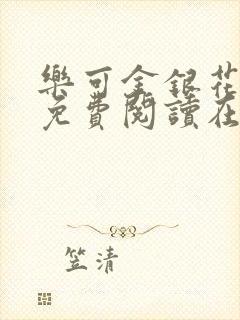 樂可金銀花
免費閱讀在
笠清